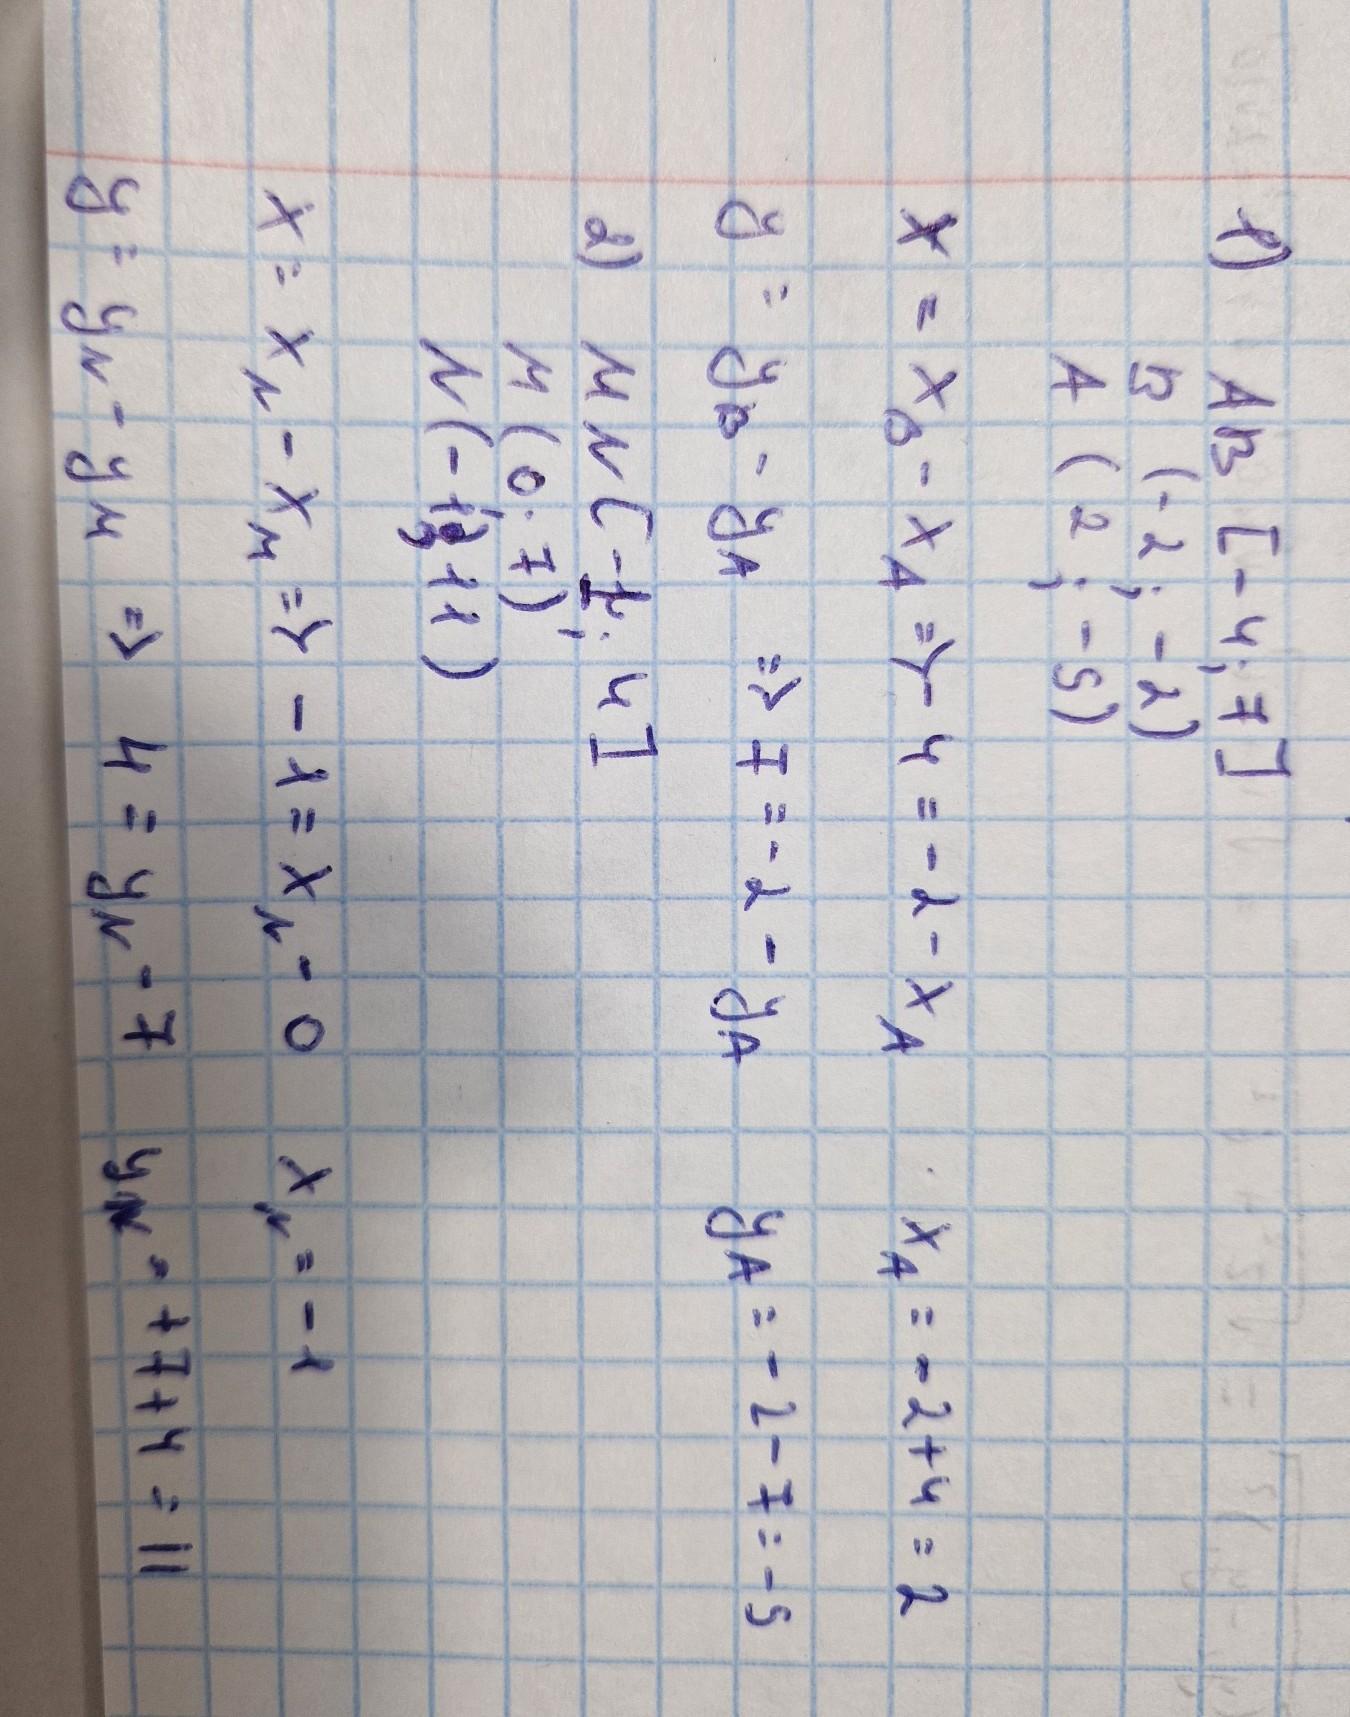 1) AB [-4; 7]
B (-2; -2)
A (2; -5)
x = x_B - x_A => -4 = -2 - x_A x_A = -2+4 = 2
y = y_B - y_A => 7 = -2 - y_A y_A = -2-7 = -5
2) MN [-1; 4]
M (0; 7)
N (-1; 11)
x = x_N - x_M => -1 = x_N - 0 x_N = -1
y = y_N - y_M => 4 = y_N - 7 y_N = +7+4 = 11